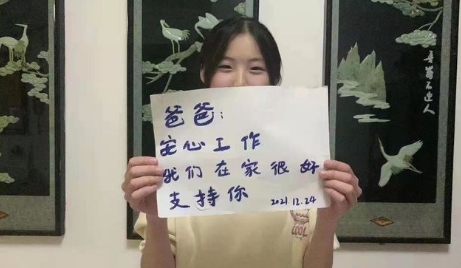 爸爸：
安心工作
我们在家很好
支持你 2021.12.24